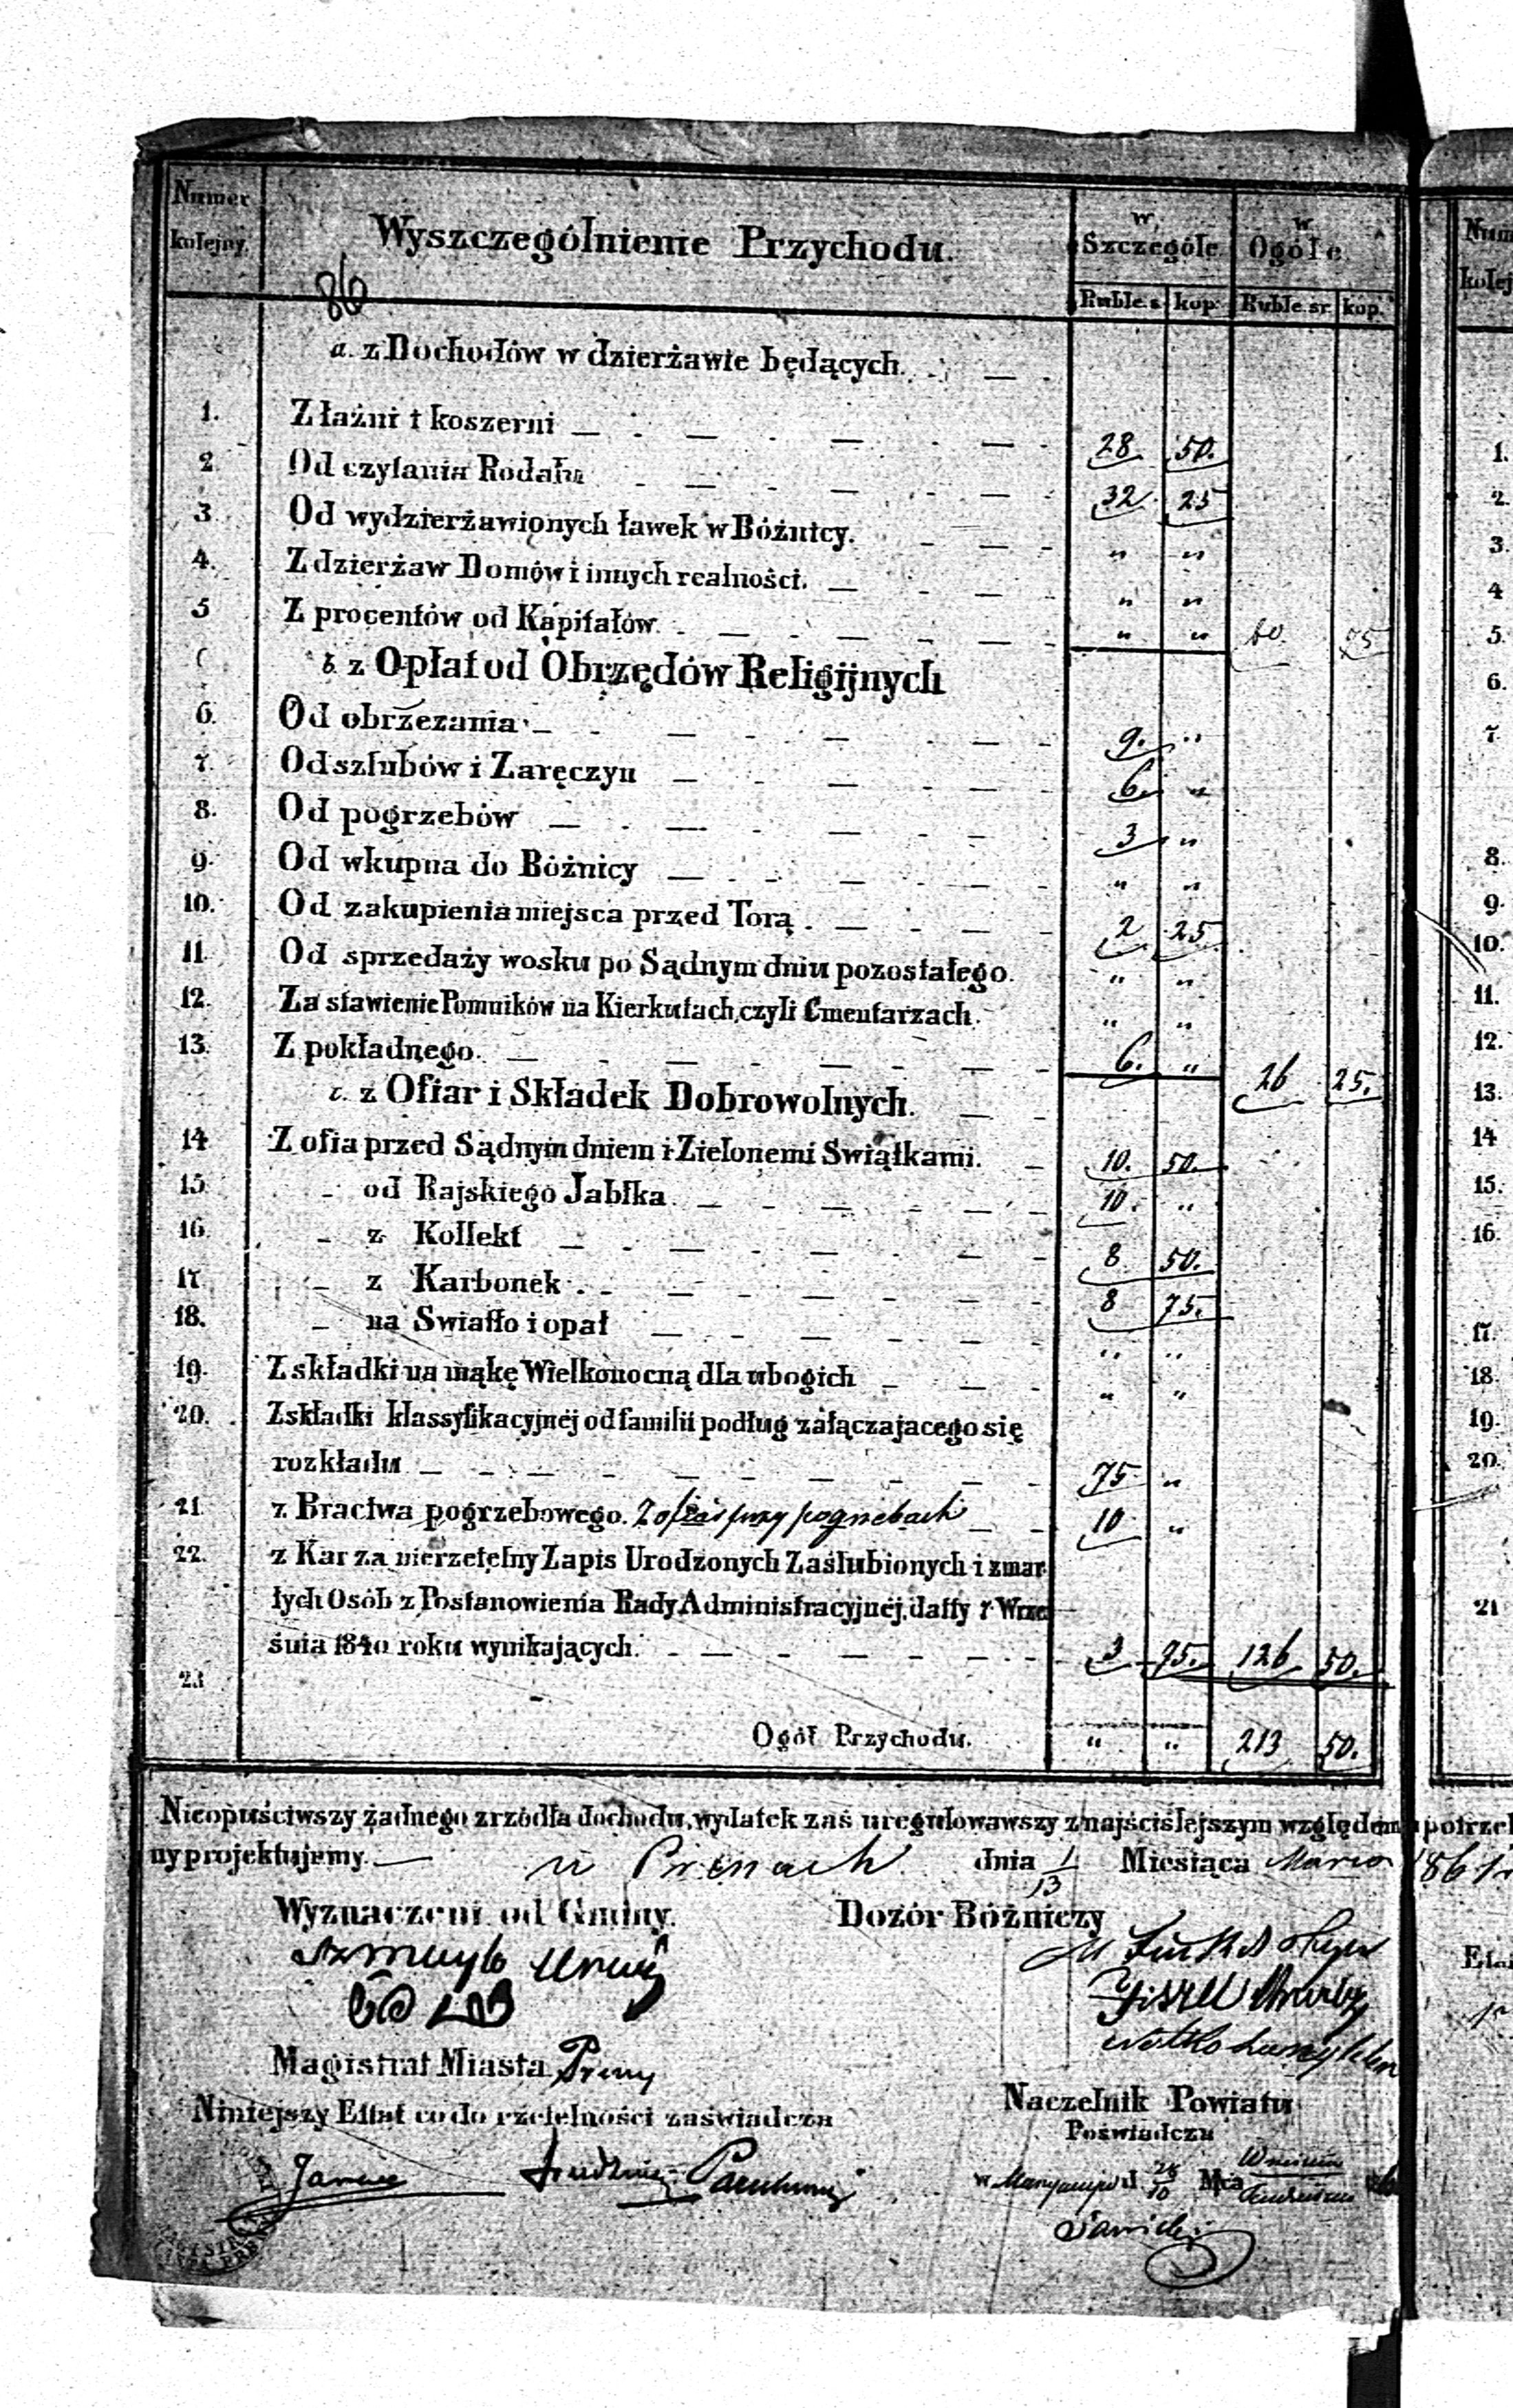 Numer kolejny. Wyszczególnienie Przychodu. w Szczególe w Ogóle
86
Ruble s. kop. Ruble sr. kop.
a. z Dochodów w dzierżawie będących.
1. Z łaźni i koszerni 28 50.
2 Od czytania Rodału 32 25
3 Od wydzierżawionych ławek w Bóżnicy. " "
4. Z dzierżaw Domów i innych realności. " "
5 Z procentów od Kapitałów. " " 60. 75
b. z Opłat od Obrzędów Religijnych
6. Od obrzezania 9. "
7. Od szlubów i Zaręczyn 6. "
8. Od pogrzebów 3 "
9. Od wkupna do Bóżnicy " "
10. Od zakupienia miejsca przed Torą. 2 25
11. Od sprzedaży wosku po Sądnym dniu pozostałego. " "
12. Za stawienie Pomników na Kierkutach, czyli Cmentarzach. " "
13. Z pokładnego. 6. " 26 25.
c. z Ofiar i Składek Dobrowolnych.
14 Z ofia przed Sądnym dniem i Zielonemi Swiątkami. 10. 50.
15 - od Rajskiego Jabłka. 10. "
16. - z Kollekt 8 50.
17 - z Karbonek. 8 75.
18. - na Swiatło i opał " "
19. Z składki na mąkę Wielkonocną dla ubogich " "
20. Z składki klassyfikacyjnéj od familii podług załączajacego się
rozkładu 75 "
21. z Bractwa pogrzebowego. Z ofiar przy pogrzebach 10 "
22. z Kar za nierzetelny Zapis Urodzonych Zaślubionych i zmar
łych Osób z Postanowienia Rady Administracyjnéj, datty 7 Wrze
śnia 1840 roku wynikających. 3 75. 126 50.
23
Ogół Przychodu. " " 213 50.
Nieopuściwszy żadnego zrzódła dochodu, wydatek zaś uregulowawszy z najściślejszym względem potrzeb
ny projektujemy. w Prenach dnia 1/13 Miesiąca Marca 186
Wyznaczeni od Gminy. Dozór Bóżniczy
Szmuylo
Magistrat Miasta Preny
Naczelnik Powiatu
Niniejszy Ettat co do rzetelności zaświadcza
Poświadcza
w Maryampolu d Mca